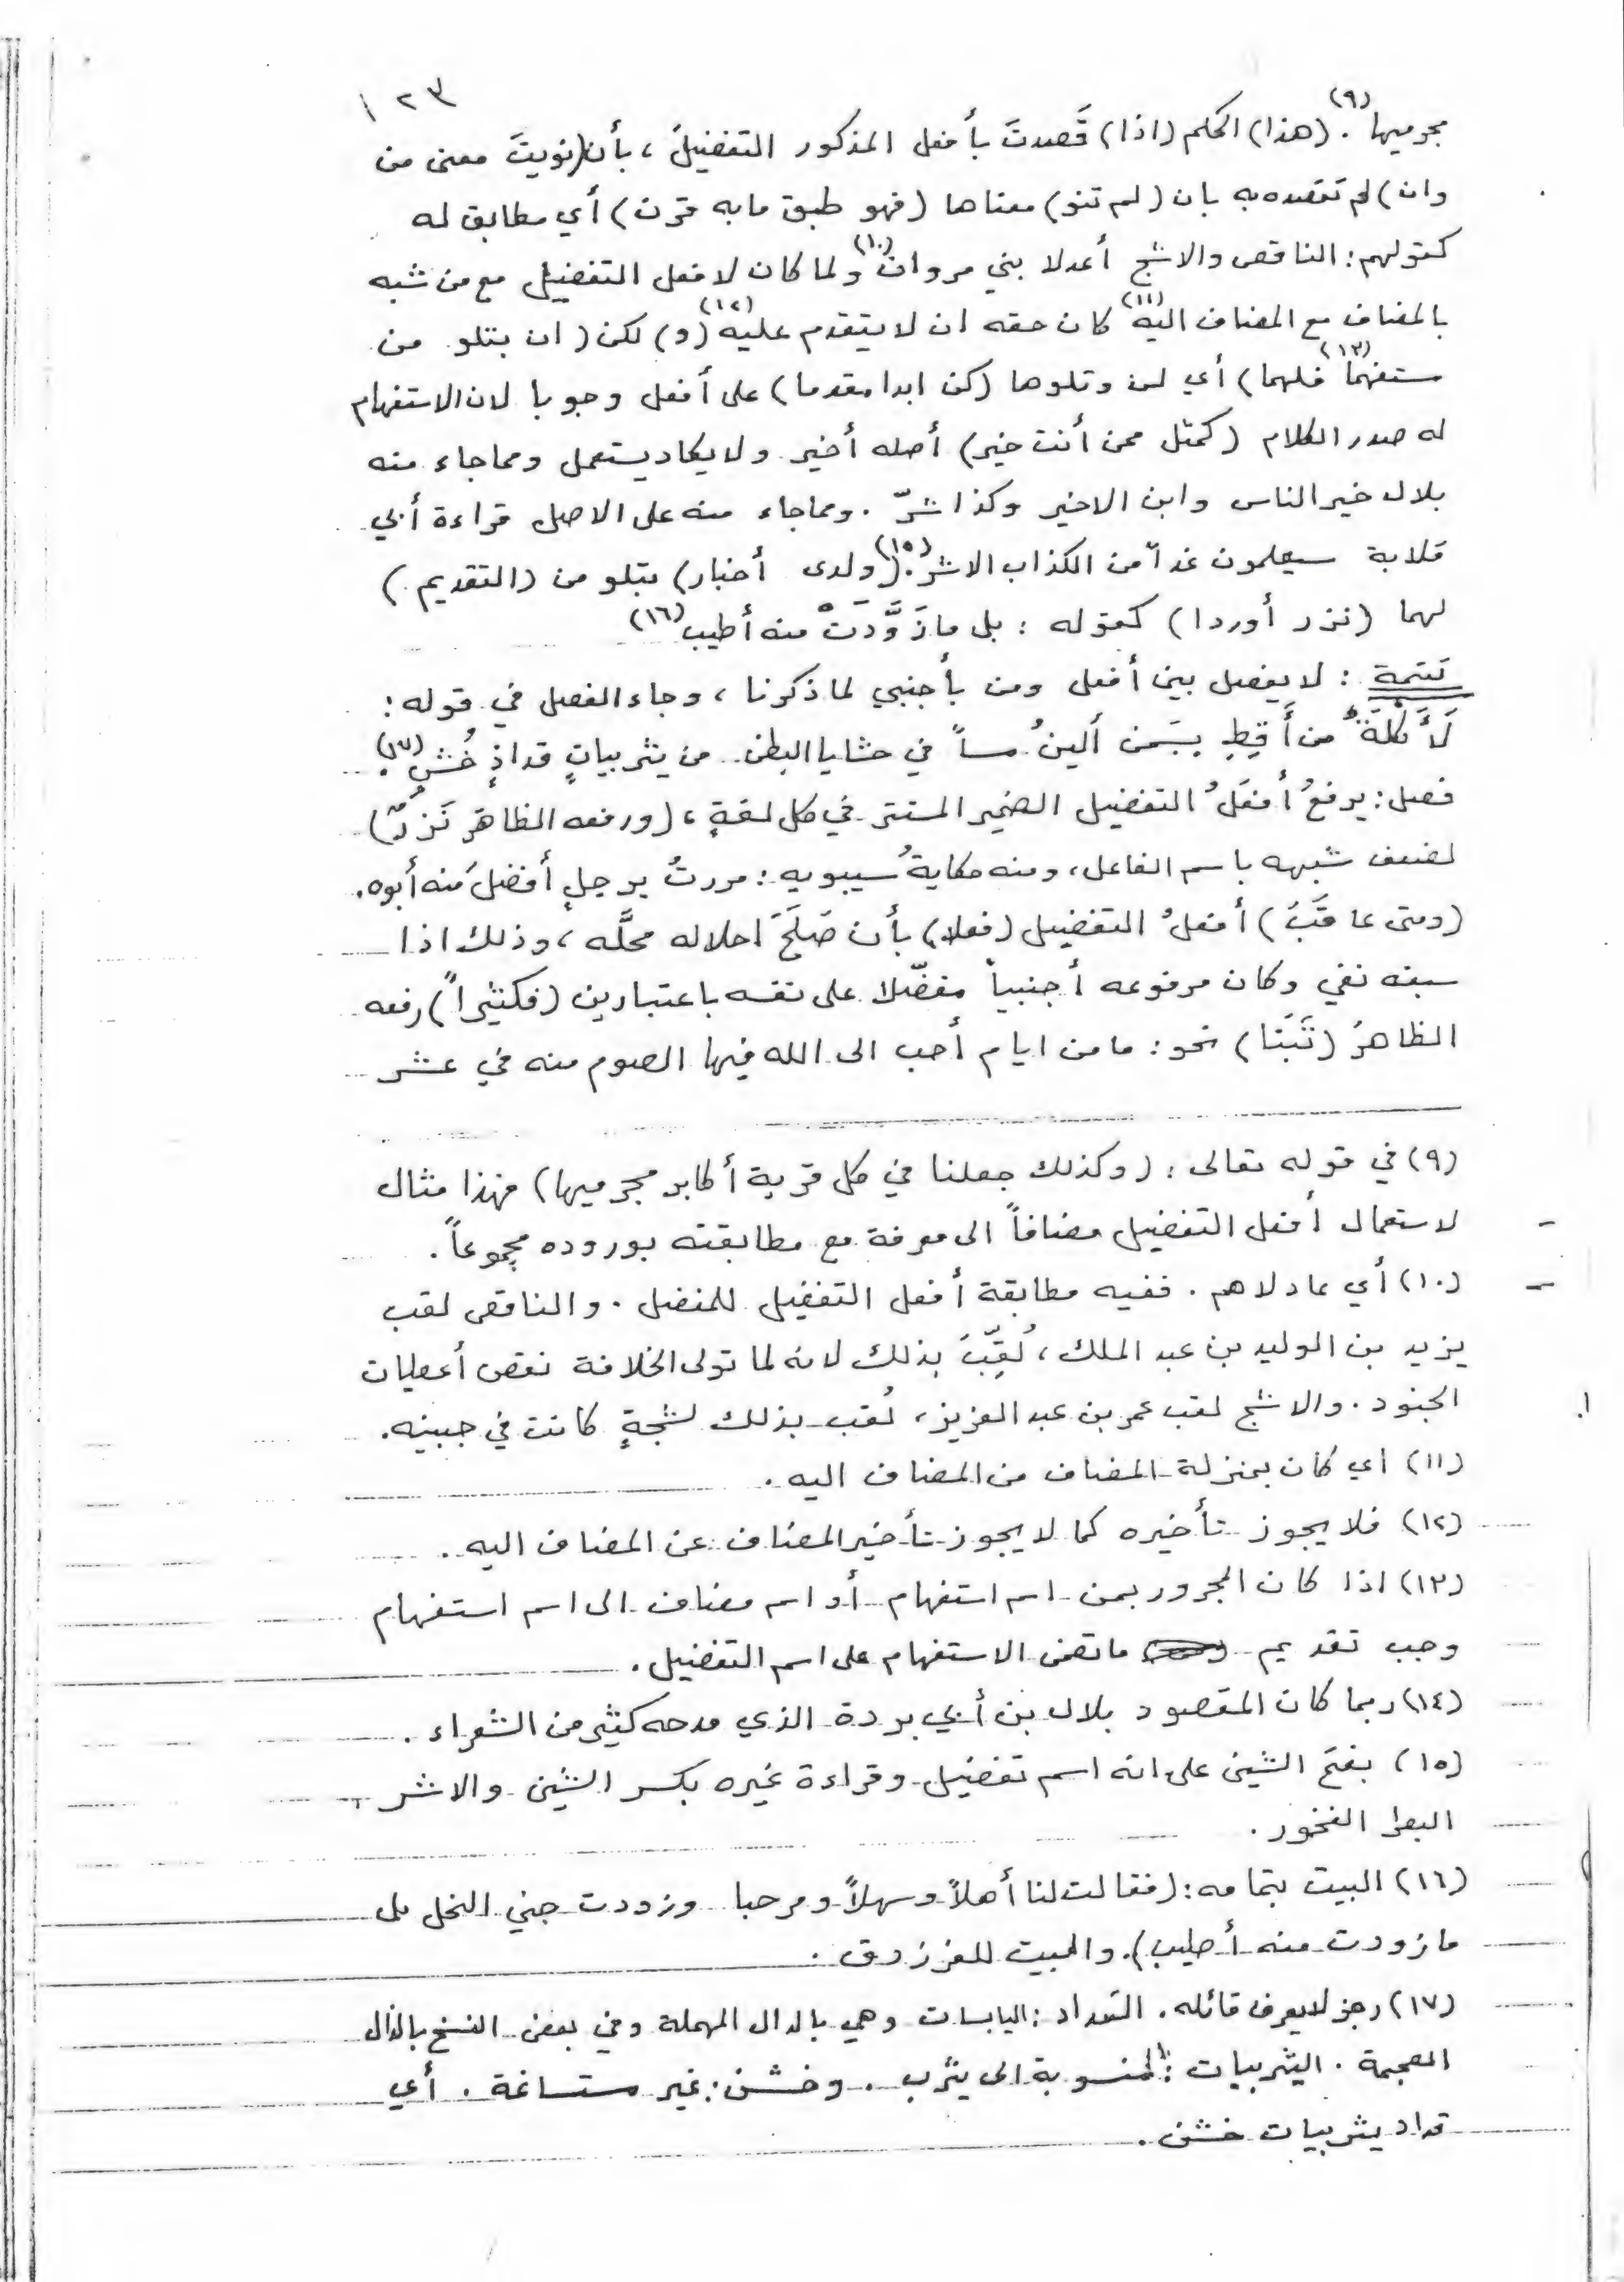 ١٢٣
مجرميها(٩). (هذا) الحكم (اذا) قَصدتَ بأفعل المذكور التفضيلَ ، بأن (نويتَ معنى من
وان) لم تقصده به بان (لم تنو) معناها (فهو طبق مابه قرن) أي مطابق له
كقولهم : الناقص والاشج أعدلا بني مروان(١٠) ولما كان لافعل التفضيل مع من شبه
بالمضاف مع المضاف اليه(١١) كان حقه ان لا يتقدم عليه(١٢) (و) لكن (ان بتلو من
مستفهما(١٣) فلهما) أي لمن وتلوها (كن ابدا مقدما) على أفعل وجوبا لان الاستفهام
له صدر الكلام (كمثل ممن أنت خير) أصله أخير ولا يكاد يستعمل ومما جاء منه
بلال خير الناس وابن الاخير وكذا شرّ . ومما جاء منه على الاصل قراءة أبي
قلابة سيعلمون غداً من الكذاب الاشر(١٥). (ولدى أخبار) بتلو من (التقديم)
لهما (نزر أوردا) كقوله : بل ما زَوَّدَتْ منه أطيب(١٦)
تتمة : لا يفصل بين أفعل ومن بأجنبي لما ذكرنا ، وجاء الفصل في قوله :
لَأَكْلَةٌ من أَقِطٍ بسَمن ألينُ مساً في حشايا البطن من يثربياتٍ قداذٍ خُشنِ(١٧).
فصل : يرفعُ أفعَلُ التفضيل الضمير المستتر في كل لغةٍ ، (ورفعه الظاهرَ نَزرٌ)
لضعف شبهه باسم الفاعل ، ومنه حكايةُ سيبويه : مررتُ برجلٍ أفضلَ منه أبوه.
(ومتى عاقَبَ) أفعلُ التفضيل (فعلا) بأن صَلَحَ احلاله محلَّه ، وذلك اذا
سبقه نفي وكان مرفوعه أجنبياً مفضّلا على نفسه باعتبارين (فكثيراً) رفعه
الظاهرُ (ثَبَتا) نحو : ما من ايام أحب الى الله فيها الصوم منه في عشر
(٩) في قوله تعالى : (وكذلك جعلنا في كل قرية أكابر مجرميها) فهذا مثال
لاستعمال أفعل التفضيل مضافاً الى معرفة مع مطابقته بوروده مجموعاً .
(١٠) أي عادلاهم . ففيه مطابقة أفعل التفضيل للمفضل . والناقص لقب
يزيد بن الوليد بن عبد الملك ، لُقِّبَ بذلك لانه لما تولى الخلافة نقص أعطيات
الجنود . والاشج لقب عمر بن عبد العزيز ، لُقب بذلك لشجةٍ كانت في جبينه.
(١١) اي كان بمنزلة المضاف من المضاف اليه .
(١٢) فلا يجوز تأخيره كما لا يجوز تأخير المضاف عن المضاف اليه .
(١٣) اذا كان المجرور بمن اسم استفهام أو اسم مضاف الى اسم استفهام
وجب تقديم ما تضمن الاستفهام على اسم التفضيل .
(١٤) ربما كان المقصود بلال بن أبي بردة الذي مدحه كثير من الشعراء .
(١٥) بفتح الشين على انه اسم تفضيل وقراءة غيره بكسر الشين والاشر
البطر الفخور .
(١٦) البيت بتمامه : (فقالت لنا أهلاً وسهلاً ومرحبا وزودت جني النحل بل
ما زودت منه أطيب). والبيت للفرزدق .
(١٧) رجز لا يعرف قائله . القداد : اليابسات وهي بالدال المهملة وفي بعض النسخ بالذال
المعجمة . اليثربيات : المنسوبة الى يثرب . وخشن : غير مستساغة . أي
قداد يثربيات خشن .